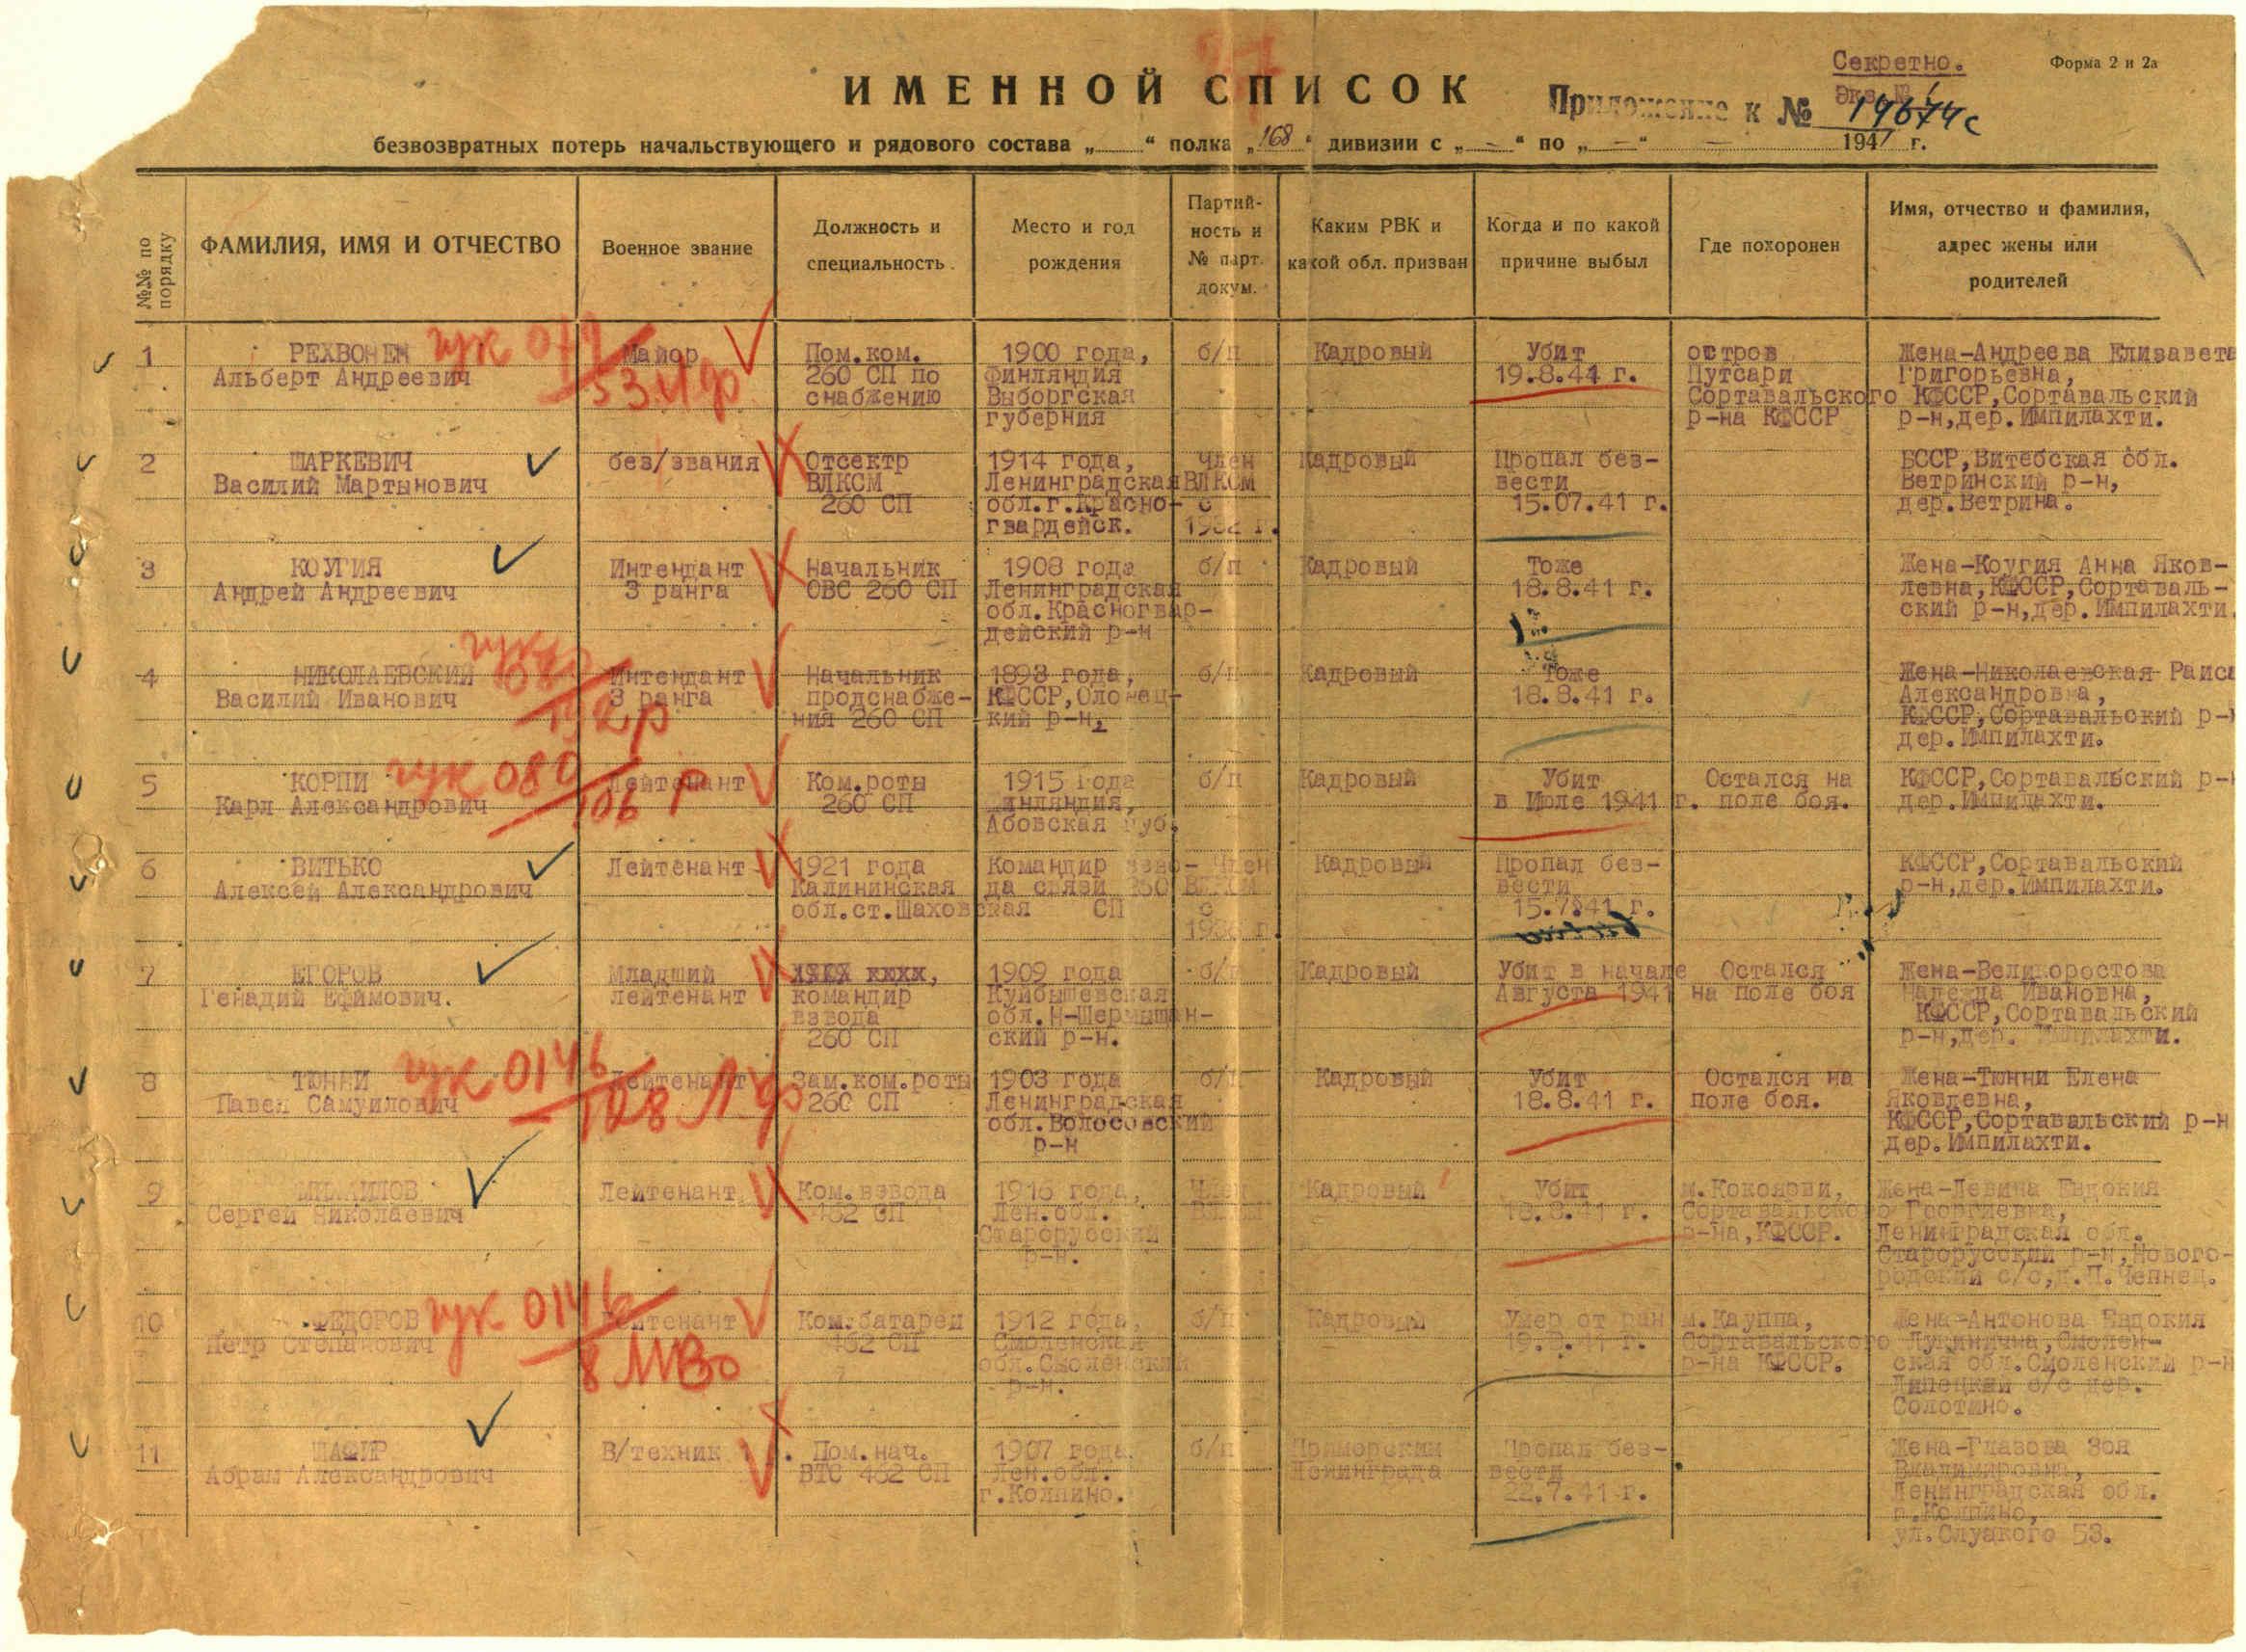 Секретно.
Форма 2 и 2а
ИМЕННОЙ СПИСОК
Приложение к № 19674с
безвозвратных потерь начальствующего и рядового состава „ “ полка „168“ дивизии с „ – “ по „ – “ – 1941 г.
№№ по порядку
ФАМИЛИЯ, ИМЯ И ОТЧЕСТВО
Военное звание
Должность и
специальность.
Место и год
рождения
Партий-
ность и
№ парт.
докум.
Каким РВК и
какой обл. призван
Когда и по какой
причине выбыл
Где похоронен
Имя, отчество и фамилия,
адрес жены или
родителей
1
РЕХВОНЕН
Альберт Андреевич
Майор
Пом.ком.
260 СП по
снабжению
1900 года,
Финляндия
Выборгская
губерния
б/п
Кадровый
Убит
19.8.41 г.
остров
Путсари
Сортавальского
р-на КФССР
Жена-Андреева Елизавета
Григорьевна,
КФССР,Сортавальский
р-н,дер.Импилахти.
2
ШАРКЕВИЧ
Василий Мартынович
без/звания
Отсектр
ВЛКСМ
260 СП
1914 года,
Ленинградская
обл.г.Красно-
гвардейск.
член
ВЛКСМ
с
1932 г.
Кадровый
Пропал без-
вести
15.07.41 г.
БССР,Витебская обл.
Ветринский р-н,
дер.Ветрина.
3
КОУГИЯ
Андрей Андреевич
Интендант
3 ранга
Начальник
ОВС 260 СП
1908 года
Ленинградская
обл.Красногвар-
дейский р-н
б/п
Кадровый
Тоже
18.8.41 г.
Жена-Коугия Анна Яков-
левна,КФССР,Сортаваль-
ский р-н,дер.Импилахти.
4
НИКОЛАЕВСКИЙ
Василий Иванович
Интендант
3 ранга
Начальник
продснабже-
ния 260 СП
1893 года,
КФССР,Олонец-
кий р-н,
б/п
Кадровый
Тоже
18.8.41 г.
Жена-Николаевская Раиса
Александровна,
КФССР,Сортавальский р-н
дер.Импилахти.
5
КОРПИ
гук 080
106 Р
Карл Александрович
Лейтенант
Ком.роты
260 СП
1915 года
Финляндия,
Абовская губ.
б/п
Кадровый
Убит
в Июле 1941 г.
Остался на
поле боя.
КФССР,Сортавальский р-н
дер.Импилахти.
6
ВИТЬКО
Алексей Александрович
Лейтенант
1921 года
Калининская
обл.ст.Шаховская
Командир взво-
да связи 260
СП
Член
ВЛКСМ
с
Кадровый
Пропал без-
вести
15.7.41 г.
КФССР,Сортавальский
р-н,дер.Импилахти.
7
ЕГОРОВ
Генадий Ефимович.
Младший
лейтенант
командир
взвода
260 СП
1909 года
Куйбышевская
обл.Н-Шермышан-
ский р-н.
б/п
Кадровый
Убит в начале
Августа 1941
Остался
на поле боя
Жена-Великоростова
Надежда Ивановна,
КФССР,Сортавальский
р-н,дер. Импилахти.
8
ТЮННИ
гук 0146
Павел Самуилович
Лейтенант
Зам.ком.роты
260 СП
1903 года
Ленинградская
обл.Волосовский
р-н
б/п
Кадровый
Убит
18.8.41 г.
Остался на
поле боя.
Жена-Тюнни Елена
Яковлевна,
КФССР,Сортавальский р-н
дер.Импилахти.
9
Сергей Николаевич
Лейтенант
Ком.взвода
462 СП
1916 года,
Лен.обл.
Старорусский
р-н.
Член
Кадровый
Убит
м.Кокоярви,
Сортавальского
р-на,КФССР.
Жена-Левина Евдокия
Георгиевна,
Ленинградская обл.
Старорусский р-н,Нового-
родский с/с,
10
ФЕДОРОВ
гук 0146
8 МВО
Петр Степанович
Лейтенант
Ком.батареи
462 СП
1912 года,
Смоленская
обл.Смоленский
р-н.
б/п
Кадровый
Умер от ран
19.8.41 г.
м.Кауппа,
Сортавальского
р-на КФССР.
Жена-Антонова Евдокия
Лукинична,Смолен-
ская обл.Смоленский р-н
Липецкий с/с дер.
Солотино.
11
ШАФИР
Абрам Александрович
В/техник
Пом.нач.
ВТС 462 СП
1907 года.
Лен.обл.
г.Колпино.
б/п
Приморским
Ленинграда
Пропал без-
вести
22.7.41 г.
Жена-Глазова Зоя
Владимировна,
Ленинградская обл.
г.Колпино,
ул.Слуцкого 53.